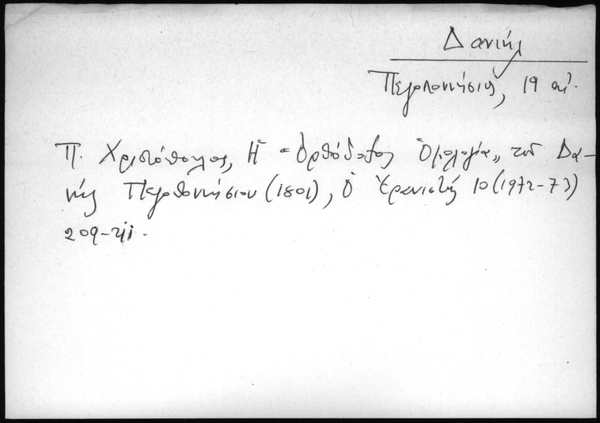 Δανιήλ
Πελοπονήσιος, 19 αἰ.
Π. Χριστόπουλος, Ἡ "Ὀρθόδοξος Ὁμολογία" τοῦ Δα-
νιήλ Πελοπονησίου (1801), Ὁ Ἐρανιστής 10 (1972-73)
209-211.